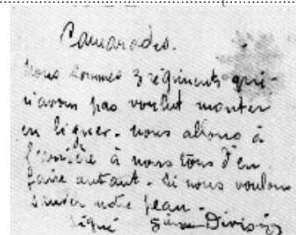 Camarades.
Nous sommes 3 régiments qui
n'avons pas voulut monter
en ligner. nous allons à
l'arrière à nous tous d'en
faire autant. si nous voulons
sauver notre peau.
signé 5ème Division